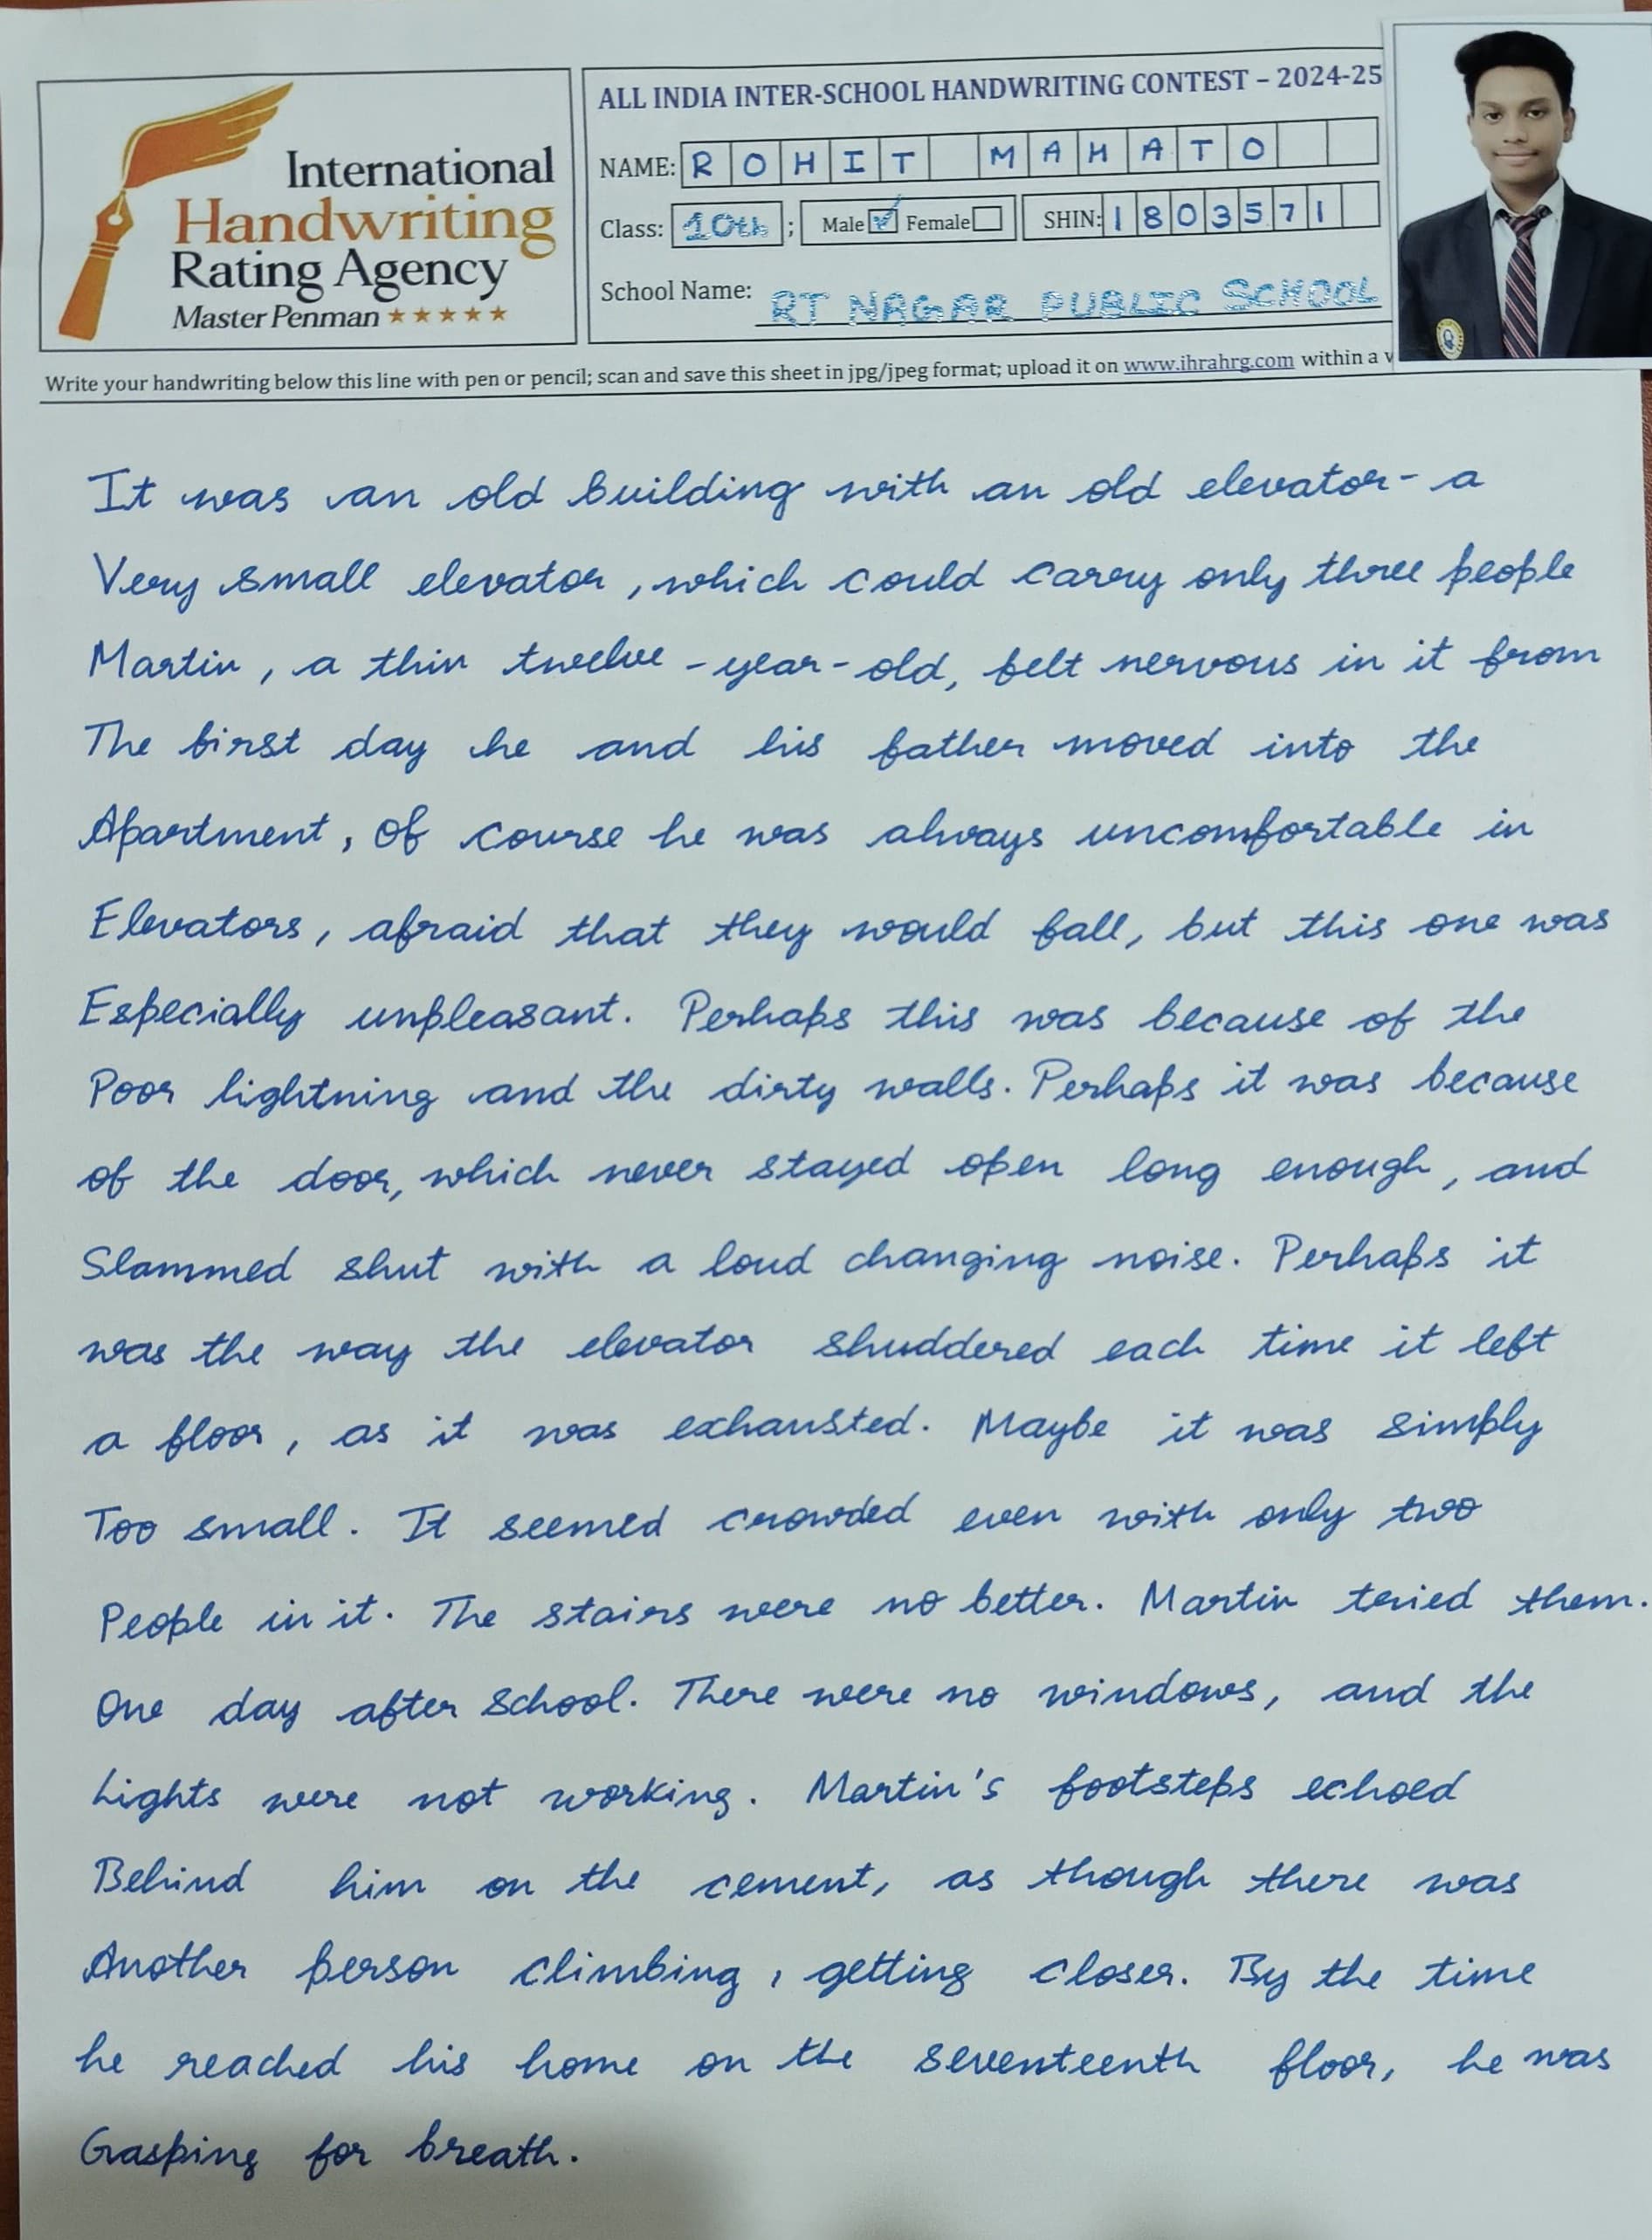 International
Handwriting
Rating Agency
Master Penman ★★★★★
ALL INDIA INTER-SCHOOL HANDWRITING CONTEST – 2024-25
NAME: ROHIT MAHATO
Class: 10th ; Male ✓ Female SHIN: 1803571
School Name: RT NAGAR PUBLIC SCHOOL
Write your handwriting below this line with pen or pencil; scan and save this sheet in jpg/jpeg format; upload it on www.ihrahrg.com within a
It was an old building with an old elevator - a
Very small elevator, which could carry only three people
Martin, a thin twelve-year-old, felt nervous in it from
The first day he and his father moved into the
Apartment, Of course he was always uncomfortable in
Elevators, afraid that they would fall, but this one was
Especially unpleasant. Perhaps this was because of the
Poor lightning and the dirty walls. Perhaps it was because
of the door, which never stayed open long enough, and
Slammed shut with a loud changing noise. Perhaps it
was the way the elevator shuddered each time it left
a floor, as it was exhausted. Maybe it was simply
Too small. It seemed crowded even with only two
People in it. The stairs were no better. Martin tried them.
One day after school. There were no windows, and the
Lights were not working. Martin's footsteps echoed
Behind him on the cement, as though there was
Another person climbing, getting closer. By the time
he reached his home on the seventeenth floor, he was
Gasping for breath.